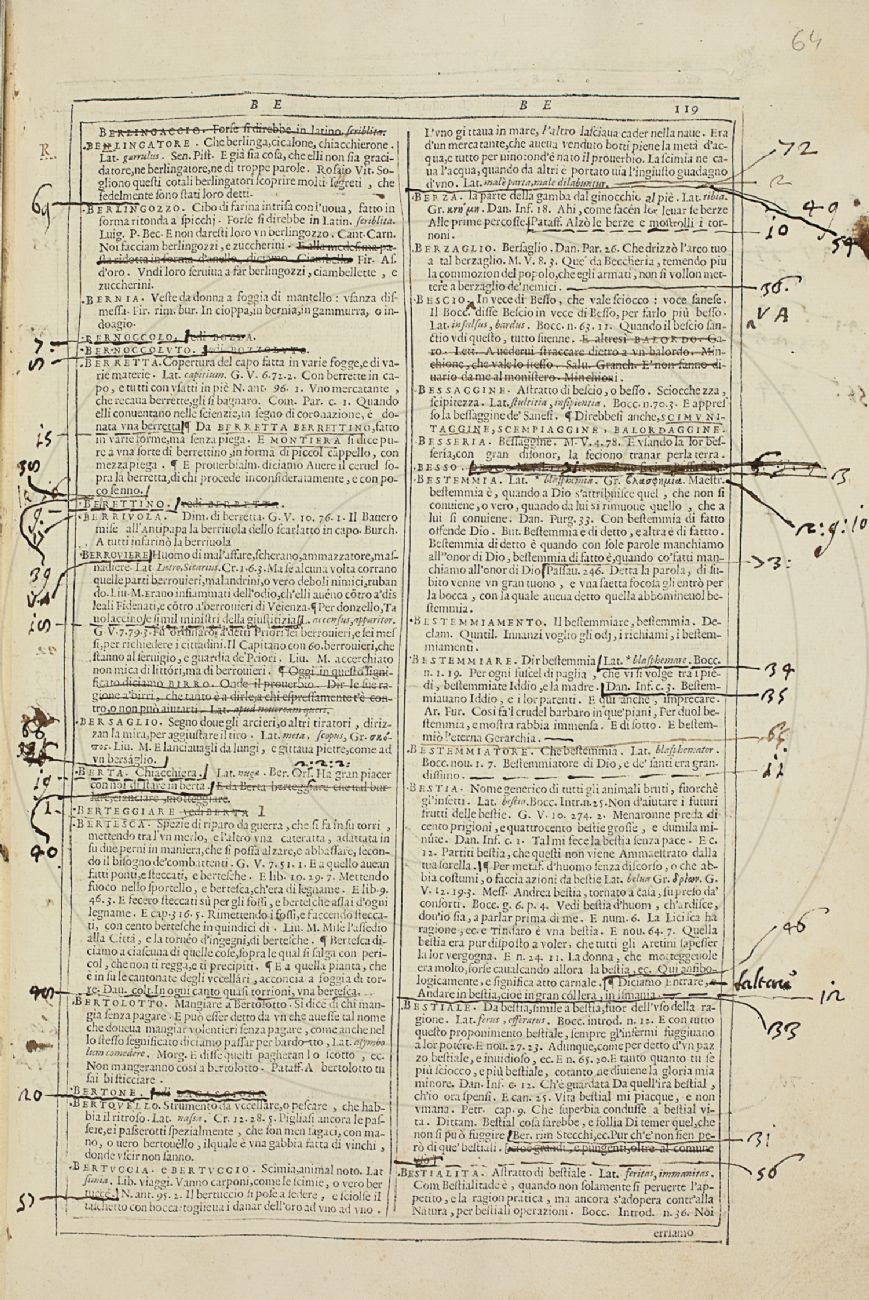 64
B E
B E
119
BERLINGACCIO. Forse si direbbe in latino scriblita.
BERLINGATORE. Che berlinga, cicalone, chiacchierone.
Lat. garrulus. Sen. Pist. E già sia cosa, che elli non sia graci-
datore, ne berlingatore, ne di troppe parole. Rosaio Vit. So-
gliono questi cotali berlingatori scoprire molti segreti, che
fedelmente sono stati loro detti.
R.
69
BERLINGOZZO. Cibo di farina intrisa con l'uoua, fatto in
forma ritonda a spicchi. Forse si direbbe in Latin. scriblita.
Luig. P. Bec. E non daresti loro vn berlingozzo. Cant. Carn.
Noi facciam berlingozzi, e zuccherini. E alla medesima pa-
sta ridotta in forma d'anello, diciamo Ciambella. Fir. As.
d'oro. Vndi loro seruiua a far berlingozzi, ciambellette, e
zuccherini.
BERNIA. Veste da donna a foggia di mantello: vsanza dis-
messa. Fir. rim. bur. In cioppa, in bernia, in gammurra, o in-
doagio.
BERNOCCOLO. vedi BOZZA.
BERNOCCOLUTO. vedi BOZZOLUTO.
BERRETTA. Copertura del capo fatta in varie fogge, e di va-
rie materie. Lat. capitium. G. V. 6. 72. 2. Con berrette in ca-
po, e tutti con vsatti in piè N. ant. 96. 1. Vno mercatante,
che recaua berrette, gli si bagnaro. Com. Par. c. 1. Quando
elli conuentano nelle scienzie, in segno di coronazione, è do-
nata vna berretta ¶ Da BERRETTA BERRETTINO, fatto
15
in varie forme, ma senza piega. E MONTIERA si dice pu-
re a vna forte di berrettino, in forma di piccol cappello, con
mezza piega. ¶ E prouerbialm. diciamo Auere il ceruel so-
pra la berretta, di chi procede inconsideratamente, e con po-
co senno.
38
BERETTINO. vedi BERRETTA.
BERRIVOLA. Dim. di berretta. G. V. 10. 76. 1. Il Bauero
mise all'Antipapa la berriuola dello scarlatto in capo. Burch.
A tutti infarinò la berriuola
BERROVIERE. Huomo di mal'affare, scherano, ammazzatore, mas-
39
nadiere. Lat. Latro, Sicarius. Cr. 1. 6. 3. Ma se alcuna volta corrano
quelle parti berrouieri, malandrini, o vero deboli nimici, ruban
do. Liu. M. Erano infiammati dell'odio, ch'elli aueno côtro a' dis
leali Fidenati, e côtro a' berrouieri di Veienza. ¶ Per donzello, Ta
uolaccino, e simil ministri della giustitizia. accensus, apparitor.
G V. 7. 79. 3. Fu ordinato, a' detti Priori sei berrouieri, e sei mes
si, per richiedere i cittadini. Il Capitano con 60. berrouieri, che
stanno al seruigio, e guardia de' Priori. Liu. M. accerchiato
non mica di littóri, ma di berrouieri. ¶ Oggi in questo signi-
ficato diciamo BIRRO. Onde il prouerbio. Dir le sue ra-
gione a' birri, che tanto è a dirle, a chi espressamente t'è con-
tro, o non può aiutarti. Lat. apud nouercam queri.
BERSAGLIO. Segno doue gli arcieri, o altri tiratori, dirizz-
zan la mira, per aggiustare il tiro. Lat. meta, scopus, Gr. σκό-
πος. Liu. M. E lanciauagli da lungi, e gittaua pietre, come ad
vn berságlio.
BERTA. Chiacchiera. Lat. nugæ. Ber. Orl. Ha gran piacer
19
con noi di stare in berta. E da Berta berteggiare che val bur-
lare, cianciare, motteggiare.
BERTEGGIARE vedi BERTA
1
BERTESCA. Spezie di riparo da guerra, che si fa in su torri,
mettendo tra l'vn merlo, e l'altro vna cateratta, adattata in
40
su due perni in maniera, che si possa alzare, e abbassare, secon-
do il bisogno de' combattenti. G. V. 7. 51. 1. E a quello auean
fatti ponti, e steccati, e bertesche. E lib. 10. 29. 7. Mettendo
fuoco nello sportello, e bertesca, ch'era di legname. E lib. 9.
46. 3. E fecero steccati sù per gli fossi, e bertesche assai d'ogni
legname. E cap. 316. 5. Rimettendo i fossi, e faccendo stecca-
ti, con cento bertesche in quindici dì. Liu. M. Mise l'assedio
alla Città, e la torneò d'ingegni, di bertesche. ¶ Bertesca di-
ciamo a ciascuna di quelle cose, sopra le qual si salga con peri-
col, che non ti regga, e ti precipiti. ¶ E a quella pianta, che
è in su le cantonate degli vccellari, acconcia a foggia di tor-
re. Dau. colt. In ogni canto quasi torrioni, vna bertesca.
BERTOLOTTO. Mangiare a Bertolotto. Si dice di chi man-
gia senza pagare. E può esser detto da vn che auesse tal nome
che doueua mangiar volentieri senza pagare, come anche nel
lo stesso segnificato diciamo passar per bardotto, Lat. asymbo
lum comedere. Morg. E disse questi pagheran lo scotto, ec.
Non mangeranno così a bertolotto. Pataff. A bertolotto tu
sai bisticciare.
20
BERTONE.
BERTOVELLO. Strumento da vccellare, o pescare, che hab-
bia il ritroso. Lat. nassa. Cr. 12. 28. 5. Pigliasi ancora le pas-
sere, ei passerotti spezialmente, che son men sagaci, con ma-
no, o uero bertouello, il quale è vna gabbia fatta di vinchi,
donde vscir non sanno.
BERTVCCIA. E BERTVCCIO. Scimia, animal noto. Lat
simia. Lib. viaggi. Vanno carponi, come le scimie, o vero ber
tucce. N. ant. 95. 2. Il bertuccio si pose a sedere, e sciolse il
taschetto con bocca: toglieua i danar dell'oro ad vno ad vno.
L'vno gittaua in mare, l'altro lasciaua cader nella naue. Era
d'un mercatante, che aueua venduto botti piene la metà d'ac-
qua, e tutto per uino: ond'è nato il prouerbio. La scimia ne ca-
ua l'acqua, quando da altri è portato uia l'ingiusto guadagno
d'vno. Lat. male parta, male dilabuntur.
72
2
49
54
BERZA. la parte della gamba dal ginocchio al piè. Lat. tibia.
Gr. κνήμα. Dan. Inf. 18. Ahi, come facén lor leuar le berze
Alle prime percosse. Pataff. Alzò le berze e mostrolli i tor-
noni.
10
BERZAGLIO. Bersaglio. Dan. Par. 26. Che drizzò l'arco tuo
a tal berzaglio. M. V. 8. 3. Que' da Beccheria, temendo più
la commozion del popolo, che egli armati, non si vollon met-
tere a berzaglio de' nemici.
36.
BESCIO. In vece di Besso, che vale sciocco: voce sanese.
VA
Il Bocc. disse Bescio in vece di Besso, per farlo più besso.
Lat. insulsus, bardus. Bocc. n. 63. 11. Quando il bescio san-
ctio vdì questo, tutto suenne. E altresì BALORDO. Ga-
ro. Lett. A uederui straccare dietro a vn balordo. Min-
chione, che vale lo stesso. Salu. Granch. E' non fanno di-
uario da me al monistero. Minchioni.
BESSAGGINE. Astratto di bescio, o besso. Sciocchezza,
scipitezza. Lat. stultitia, insipientia. Bocc. n. 70. 3. E appres
so la bessaggine de' Sanesi. ¶ Direbbesi anche, SCIMUNI-
TAGGINE, SCEMPIAGGINE, BALORDAGGINE.
BESSERIA. Bessaggine. M. V. 4. 78. E vsando la lor bes-
seria, con gran disonor, la feciono tranar per la terra.
BESSO.
3
BESTEMMIA. Lat. * blasphemia. Gr. βλασφημία. Maestr.
bestemmia è, quando a Dio s'attribuisce quel, che non si
conuiene, o vero, quando da lui si rimuoue quello, che a
lui si conuiene. Dan. Purg. 33. Con bestemmia di fatto
2:9:10
offende Dio. But. Bestemmia e di detto, e altra è di fattto.
Bestemmia di detto è quando con sole parole manchiamo
all'onor di Dio, bestemmia di fatto è, quando co' fatti man-
chiamo all'onor di Dio. Passau. 246. Detta la parola, di su-
3:
bito venne vn gran tuono, e vna saetta focosa gli entrò per
la bocca, con la quale aueua detto quella abbomineuol be-
stemmia.
BESTEMMIAMENTO. Il bestemmiare, bestemmia. De-
clam. Quintil. Innanzi voglio gli odj, i richiami, i bestem-
miamenti.
BESTEMMIARE. Dir bestemmia. Lat. * blasphemare. Bocc.
34
n. 1. 19. Per ogni fuscel di paglia, che vi si volge tra i pie-
di, bestemmiate Iddio, e la madre. Dan. Inf. c. 3. Bestem-
35
miauano Iddio, e i lor parenti. E qui anche, imprecare.
Ar. Fur. Così fa'l crudel barbaro in que' piani, Per duol be-
stemmia, e mostra rabbia immensa. E di sotto. E bestem-
miò l'eterna Gerarchia.
BESTEMMIATORE. Che bestemmia. Lat. blasphemator.
Bocc. nou. 1. 7. Bestemmiatore di Dio, e de' santi era gran-
11
dissimo.
BESTIA. Nome generico di tutti gli animali bruti, fuorchè
gl'insetti. Lat. bestia. Bocc. Intr. n. 25. Non d'aiutare i futuri
frutti delle bestie. G. V. 10. 274. 2. Menaronne preda di
cento prigioni, e quattrocento bestie grosse, e dumila mi-
nute. Dan. Inf. c. 1. Tal mi fece la bestia senza pace. E c.
12. Partiti bestia, che questi non viene Ammaestrato dalla
tua sorella. ¶ Per metaf. d'huomo senza discorso, o che ab-
bia costumi, o faccia azioni da bestie Lat. belua Gr. θηρίον. G.
V. 12. 19. 3. Mess. Andrea bestia, tornato a casa, fu preso da'
consorti. Bocc. g. 6. p. 4. Vedi bestia d'huom, ch'ardisce,
dou'io sia, a parlar prima di me. E num. 6. La Licisca ha
ragione, ec. e Tindaro è vna bestia. E nou. 64. 7. Quella
bestia era pur disposto a voler, che tutti gli Aretini sapesser
la lor vergogna. E n. 24. 11. La donna, che motteggeuole
era molto, forse caualcando allora la bestia, ec. Qui anfibo-
46
logicamente, e significa atto carnale. ¶ Diciamo Entrare,
Andare in bestia, cioè in gran còllera, in ismania.
12
33
BESTIALE. Da bestia, simile a bestia, fuor dell'vso della ra-
gione. Lat. ferus, efferatus. Bocc. introd. n. 12. E con tutto
questo proponimento bestiale, sempre gl'infermi fuggiuano
a lor potére. E nou. 27. 23. Adunque, come per detto d'vn paz
zo bestiale, e inuidioso, ec. E n. 65. 30. E tanto quanto tu se
più sciocco, e più bestiale, cotanto ne diuiene la gloria mia
minore. Dan. Inf. c. 12. Ch'è guardata Da quell'ira bestial,
ch'io ora spensi. E can. 25. Vita bestial mi piacque, e non
vmana. Petr. cap. 9. Che superbia condusse a bestial vi-
ta. Dittam. Bestial cosa sarebbe, e follia Di temer quel, che
non si può fuggire. Ber. rim Stecchi, ec. Pur ch'e' non sien pe-
31
rò di que' bestiali. cioè grandi, e pungenti, oltre al comune
56
BESTIALITÀ. Astratto di bestiale. Lat. feritas, immanitas.
Com Bestialitade è, quando non solamente si peruerte l'ap-
petito, e la ragion pratica, ma ancora s'adopera contr'alla
Natura, per bestiali operazioni. Bocc. Introd. n. 36. Noi
erriamo